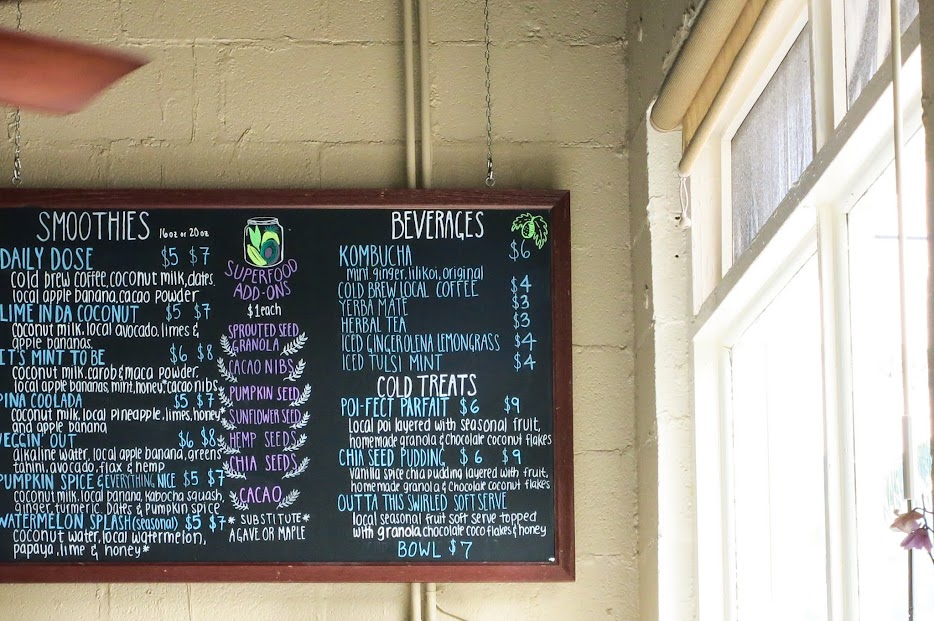 SMOOTHIES 16oz or 20oz
DAILY DOSE $5 $7
cold brew coffee, coconut milk, dates,
local apple banana, cacao powder
LIME IN DA COCONUT $5 $7
coconut milk, local avocado, limes &
apple bananas
ET'S MINT TO BE $6 $8
coconut milk, carob & maca powder,
local apple bananas, mint, honey* cacao nibs
PINA COOLADA $5 $7
coconut milk, local pineapple, limes, honey*
and apple banana
VEGGIN' OUT $6 $8
alkaline water, local apple banana, greens
tahini, avocado, flax & hemp
PUMPKIN SPICE & EVERYTHING NICE $5 $7
coconut milk, local banana, kabocha squash,
ginger, turmeric, dates & pumpkin spice
WATERMELON SPLASH (seasonal) $5 $7
coconut water, local watermelon,
papaya, lime & honey*
SUPERFOOD
ADD-ONS
$1 each
SPROUTED SEED
GRANOLA
CACAO NIBS
PUMPKIN SEED
SUNFLOWER SEED
HEMP SEEDS
CHIA SEEDS
CACAO
* SUBSTITUTE *
AGAVE OR MAPLE
BEVERAGES
KOMBUCHA $6
mint, ginger, lilikoi, original
COLD BREW LOCAL COFFEE $4
YERBA MATE $3
HERBAL TEA $3
ICED GINGEROLENA LEMONGRASS $4
ICED TULSI MINT $4
COLD TREATS
POI-FECT PARFAIT $6 $9
local poi layered with seasonal fruit,
homemade granola & chocolate coconut flakes
CHIA SEED PUDDING $6 $9
vanilla spice chia pudding layered with fruit,
homemade granola & chocolate coconut flakes
OUTTA THIS SWIRLED SOFT SERVE
local seasonal fruit soft serve topped
with granola, chocolate coco flakes & honey
BOWL $7